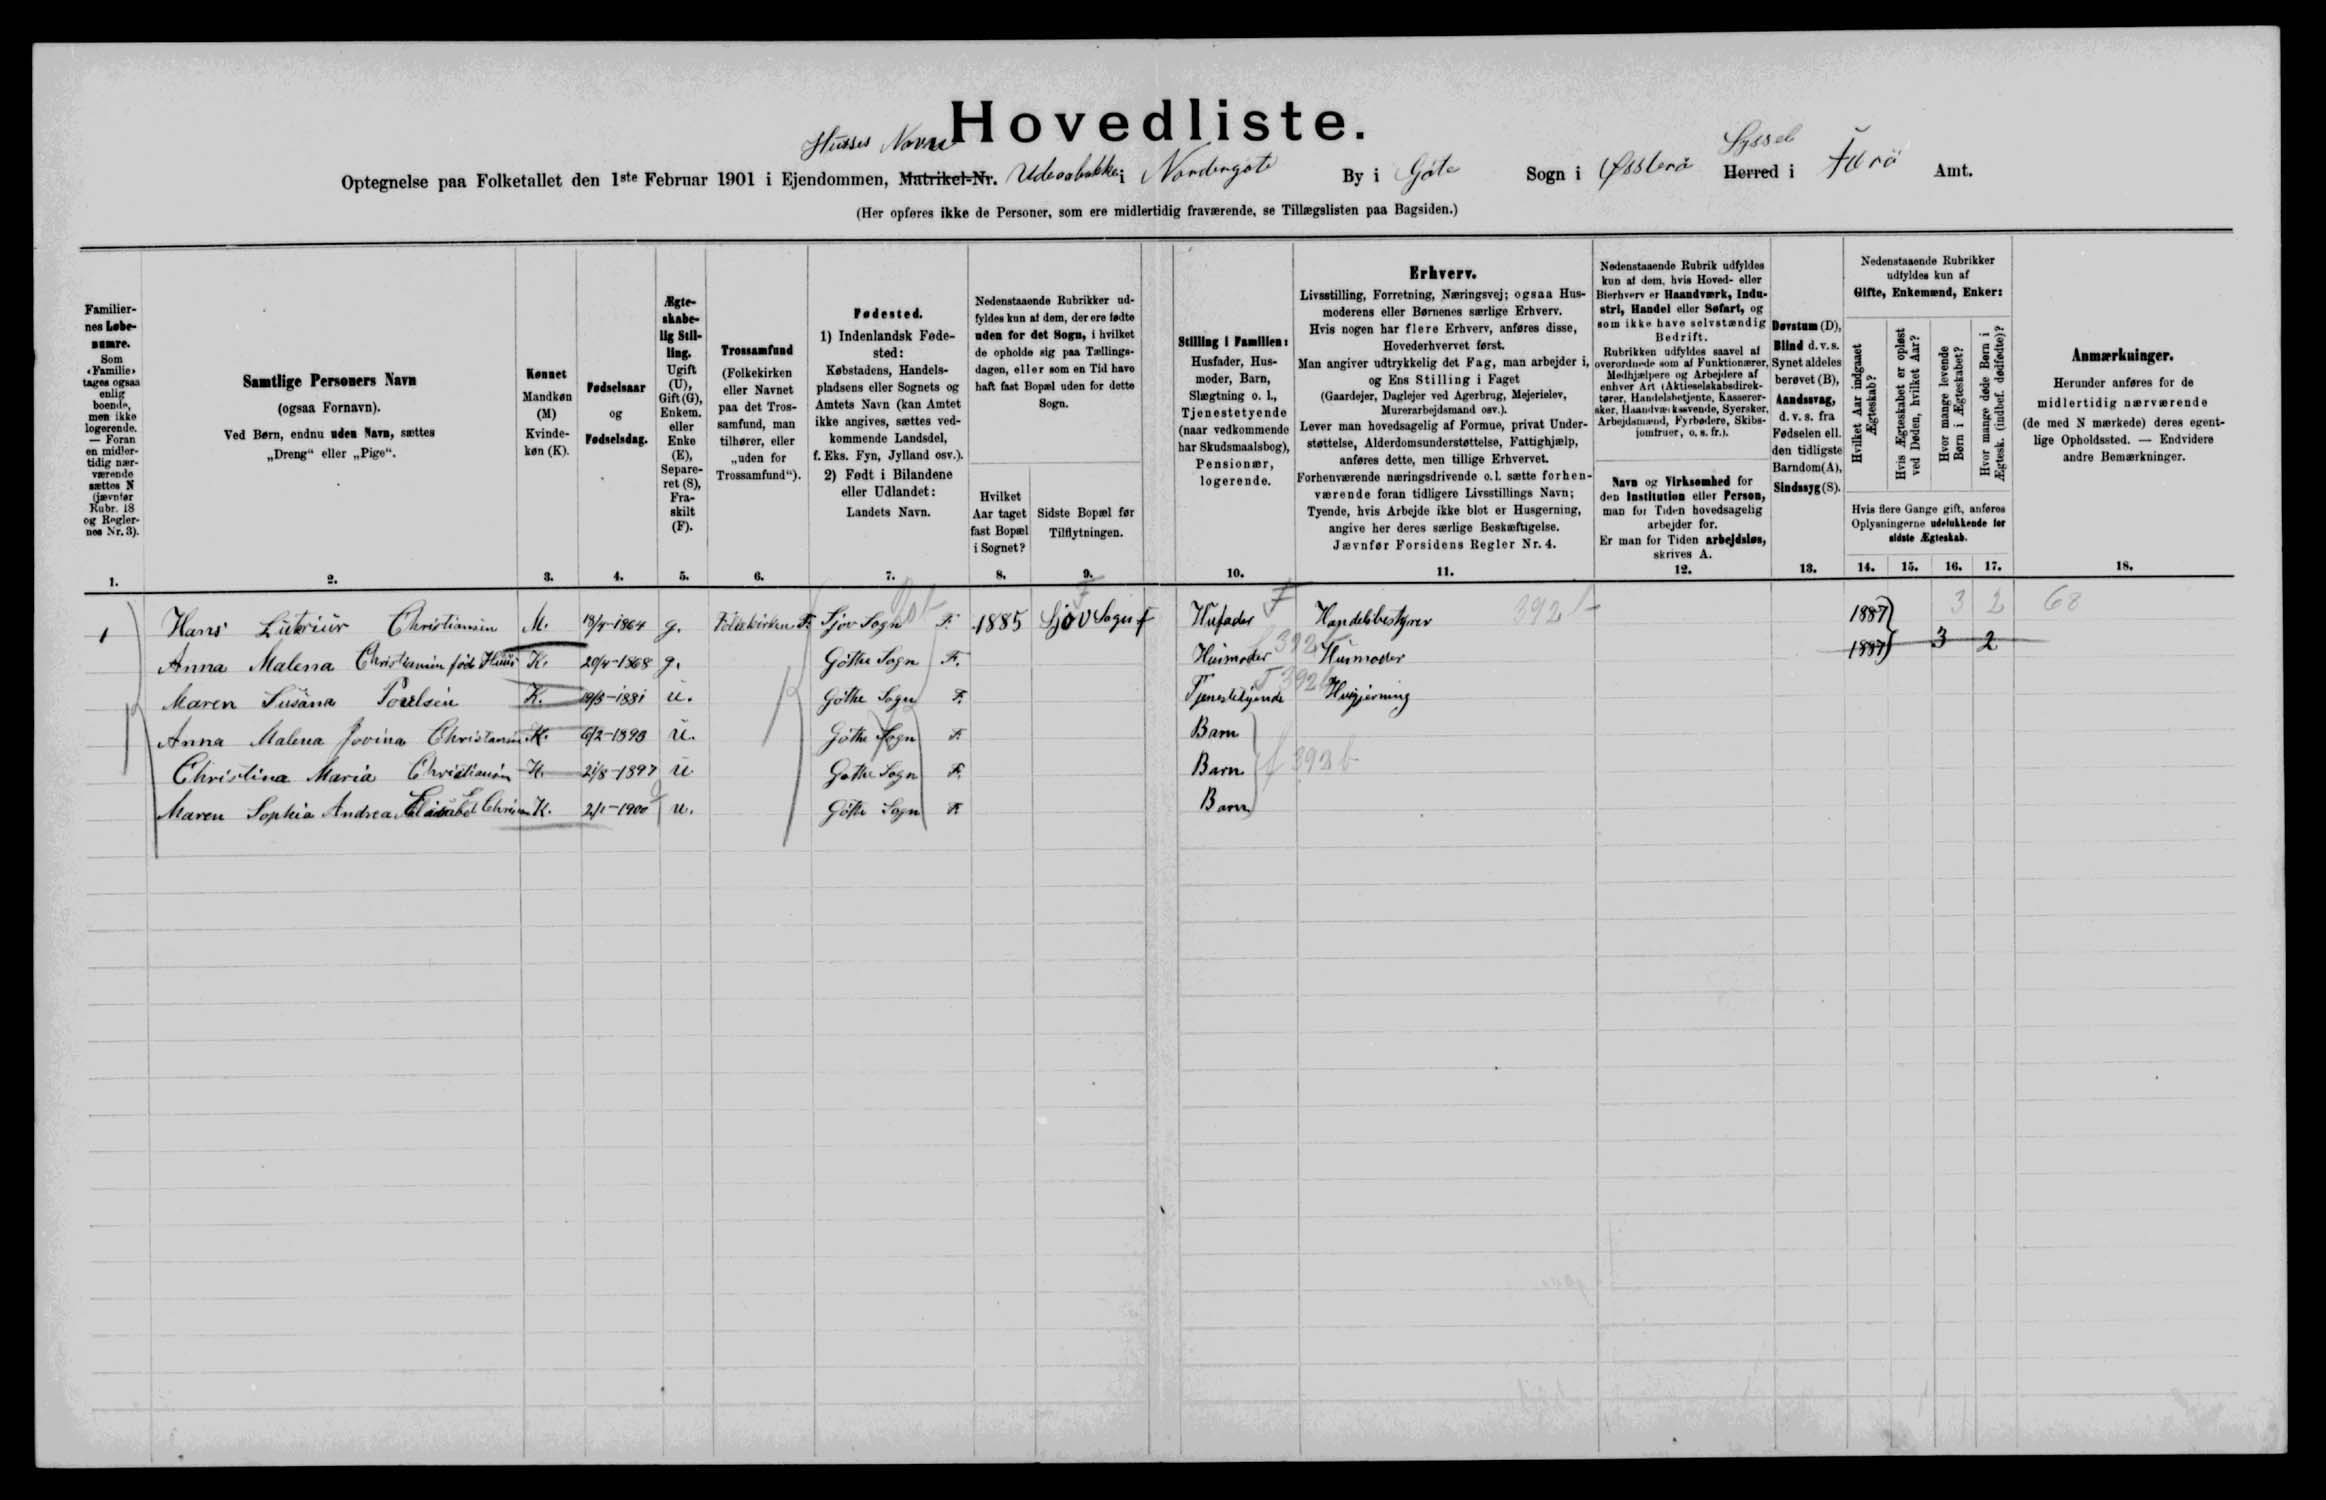 Hovedliste.
Huses Navn
Syssel
Optegnelse paa Folketallet den 1ste Februar 1901 i Ejendommen, Matrikel-Nr. i Nordregöte By i Göte Sogn i Østerö Herred i Færö Amt.
(Her opføres ikke de Personer, som ere midlertidig fraværende, se Tillægslisten paa Bagsiden.)
Familiernes Løbenumre.
Som «Familie» tages ogsaa enlig boende, men ikke logerende. — Foran en midlertidig nærværende sættes N (jævnfør Rubr. 18 og Reglernes Nr. 3).
Samtlige Personers Navn
(ogsaa Fornavn).
Ved Børn, endnu uden Navn, sættes
„Dreng“ eller „Pige“.
Kønnet
Mandkøn (M)
Kvindekøn (K).
Fødselsaar
og
Fødselsdag.
Ægteskabelig Stilling.
Ugift (U), Gift (G), Enkem. eller Enke (E), Separeret (S), Fraskilt (F).
Trossamfund
(Folkekirken eller Navnet paa det Trossamfund, man tilhører, eller „uden for Trossamfund“).
Fødested.
1) Indenlandsk Fødested:
Købstadens, Handelspladsens eller Sognets og Amtets Navn (kan Amtet ikke angives, sættes vedkommende Landsdel, f. Eks. Fyn, Jylland osv.).
2) Født i Bilandene eller Udlandet:
Landets Navn.
Nedenstaaende Rubrikker udfyldes kun af dem, der ere fødte uden for det Sogn, i hvilket de opholde sig paa Tællingsdagen, eller som en Tid have haft fast Bopæl uden for dette Sogn.
Hvilket Aar taget fast Bopæl i Sognet?
Sidste Bopæl før Tilflytningen.
Stilling i Familien:
Husfader, Husmoder, Barn, Slægtning o. l., Tjenestetyende (naar vedkommende har Skudsmaalsbog), Pensionær, logerende.
Erhverv.
Livsstilling, Forretning, Næringsvej; ogsaa Husmoderens eller Børnenes særlige Erhverv.
Hvis nogen har flere Erhverv, anføres disse, Hovederhvervet først.
Man angiver udtrykkelig det Fag, man arbejder i, og Ens Stilling i Faget
(Gaardejer, Daglejer ved Agerbrug, Mejerielev, Murerarbejdsmand osv.).
Lever man hovedsagelig af Formue, privat Understøttelse, Alderdomsunderstøttelse, Fattighjælp, anføres dette, men tillige Erhvervet.
Forhenværende næringsdrivende o. l. sætte forhenværende foran tidligere Livsstillings Navn;
Tyende, hvis Arbejde ikke blot er Husgerning, angive her deres særlige Beskæftigelse.
Jævnfør Forsidens Regler Nr. 4.
Nedenstaaende Rubrik udfyldes kun af dem, hvis Hoved- eller Bierhverv er Haandværk, Industri, Handel eller Søfart, og som ikke have selvstændig Bedrift.
Rubrikken udfyldes saavel af overordnede som af Funktionærer, Medhjælpere og Arbejdere af enhver Art (Aktieselskabsdirektører, Handelsbetjente, Kasserersker, Haandværkssvende, Syersker, Arbejdsmænd, Fyrbødere, Skibsjomfruer, o. s. fr.).
Navn og Virksomhed for den Institution eller Person, man for Tiden hovedsagelig arbejder for.
Er man for Tiden arbejdsløs, skrives A.
Døvstum (D),
Blind d. v. s. Synet aldeles berøvet (B),
Aandssvag, d. v. s. fra Fødselen ell. den tidligste Barndom (A),
Sindssyg (S).
Nedenstaaende Rubrikker udfyldes kun af
Gifte, Enkemænd, Enker:
Hvilket Aar indgaaet Ægteskab?
Hvis Ægteskabet er opløst ved Døden, hvilket Aar?
Hvor mange levende Børn i Ægteskabet?
Hvor mange døde Børn i Ægtesk. (indbef. dødfødte)?
Hvis flere Gange gift, anføres Oplysningerne udelukkende for sidste Ægteskab.
Anmærkninger.
Herunder anføres for de midlertidig nærværende (de med N mærkede) deres egentlige Opholdssted. — Endvidere andre Bemærkninger.
1. 2. 3. 4. 5. 6. 7. 8. 9. 10. 11. 12. 13. 14. 15. 16. 17. 18.
1 Hans Christiansen M. 19/4-1864 g. Folkekirken F. Sjov Sogn F. 1885 Sjov Sogn F Husfader Handelsbestyrer 392 1887 3 2 68
Anna Malena Christiansen født Huus K. 20/4-1868 g. Göthe Sogn F. Husmoder 392 Husmoder 1887 3 2
Maren Susana Poulsen K. 19/3-1881 u. Göthe Sogn F. Tjenestetyende 392 Husgjerning
Anna Malena Jovina Christiansen K. 6/2-1893 u. Göthe Sogn F. Barn
Christina Maria Christiansen K. 21/8-1897 u Gothe Sogn F. Barn 392b
Maren Sophia Andrea Elisabet K. 2/1-1900 u. Göthe Sogn F. Barn